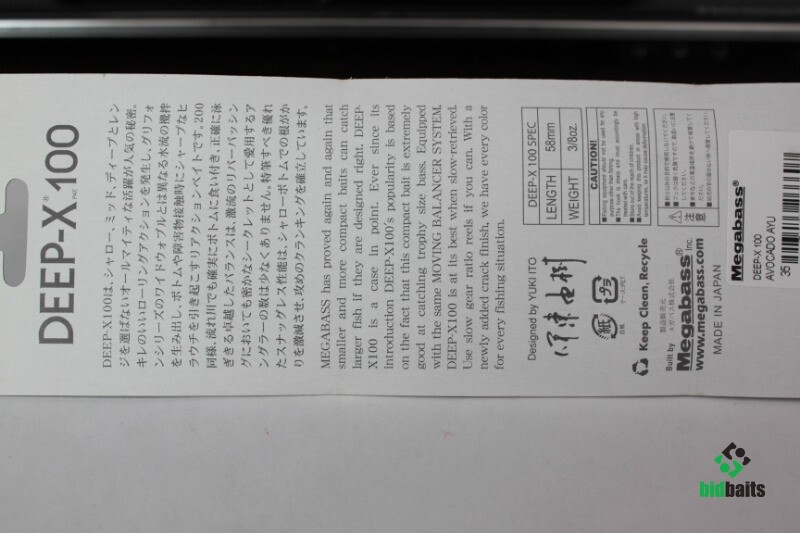 DEEP-X® 100
PAT.
DEEP-X100は、シャロー、ミッド ディープとレン
ジを選ばないオールマイティな活躍が人気の秘密。
キレのいいローリングアクションを発生し、グリフォ
ンシリーズのワイドウォブルとは異なる水流の攪拌
を生み出し、ボトムや障害物接触時にシャープなヒ
ラウチを引き起こすリアクションベイトです。200
同様、流れ川でも確実にボトムに食い付き、正確に泳
ぎきる卓越したバランスは、激流のリバーバッシン
グにおいても密かなシークレットとして愛用するア
ングラーの数は少なくありません。特筆すべき優れ
たスナッグレス性能は、シャローボトムでの根がか
りを激減させ、攻めのクランキングを確立しています。
MEGABASS has proved again and again that
smaller and more compact baits can catch
larger fish if they are designed right. DEEP-
X100 is a case in point. Ever since its
introduction DEEP-X100's popularity is based
on the fact that this compact bait is extremely
good at catching trophy size bass. Equipped
with the same MOVING BALANCER SYSTEM,
DEEP-X100 is at its best when slow-retrieved.
Use slow gear ratio reels if you can. With a
newly added crack finish, we have every color
for every fishing situation.
DEEP-X 100 SPEC
LENGTH 58mm
WEIGHT 3/8oz.
CAUTION!
注意
Designed by YUKI ITO
紙
プラ
Keep Clean, Recycle
Built by
Megabass® Inc.
www.megabass.com
MADE IN JAPAN
Megabass®
DEEP-X 100
AVOCADO AYU
35
bidbaits